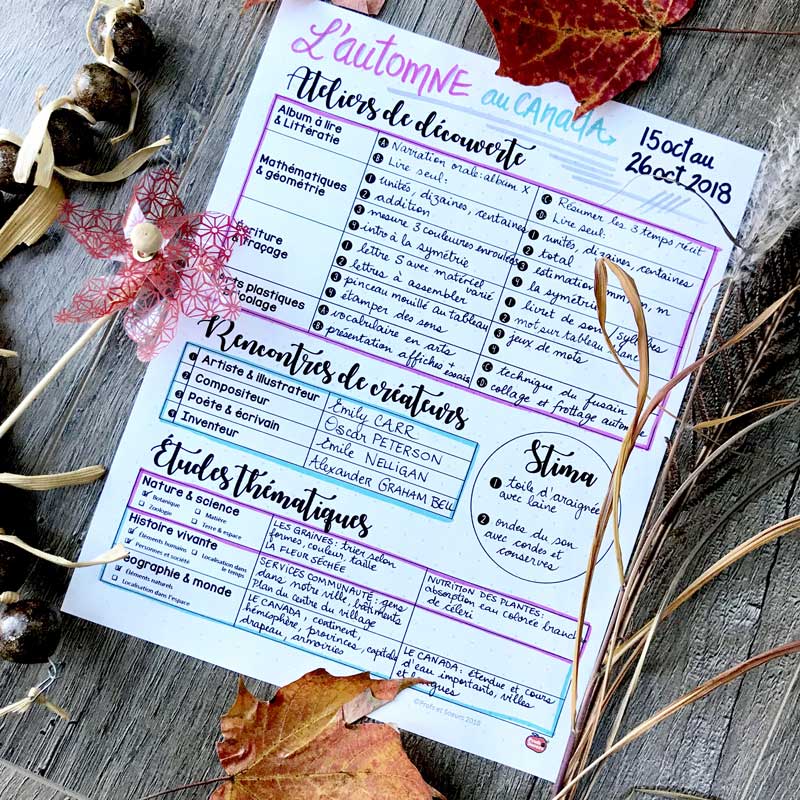 L'automne au CANADA
15 oct au
26 oct 2018
Ateliers de découverte
Album à lire
& Littératie
A Narration orale: album X
B Lire seul:
C Résumer les 3 temps récit
D Lire seul:
Mathématiques
& géométrie
1 unités, dizaines, centaines
2 addition
3 mesure 3 couleuvres enroulées
4 intro à la symétrie
1 unités, dizaines, centaines
2 total
3 estimation mm, cm, m
4 la symétrie
Écriture
& traçage
1 lettre S avec matériel
2 lettres à assembler varié
3 pinceau mouillé au tableau
4 étamper des sons
1 livret de son / syllabes
2 mot sur tableau blanc
3 jeux de mots
4
Arts plastiques
bricolage
A vocabulaire en arts
B présentation affiches + essais
C technique du fusain
D collage et frottage automne
Rencontres de créateurs
1 Artiste & illustrateur Emily CARR
2 Compositeur Oscar PETERSON
3 Poète & écrivain Émile NELLIGAN
4 Inventeur Alexander GRAHAM BELL
Stima
1 toile d'araignée
avec laine
2 ondes du son
avec cordes et
conserves
Études thématiques
Nature & science
Botanique Matière
Zoologie Terre & espace
LES GRAINES: trier selon
formes, couleur, taille
LA FLEUR SÉCHÉE
NUTRITION DES PLANTES:
absorption eau colorée branche
de céleri
Histoire vivante
Éléments humains Localisation dans
Personnes et société le temps
SERVICES COMMUNAUTÉ: gens
dans notre ville, bâtiments
Plan du centre du village
Géographie & monde
Éléments naturels
Localisation dans l'espace
LE CANADA, continent,
hémisphère, provinces, capitale
drapeau, armoiries
LE CANADA: étendue et cours
d'eau importants, villes
et langues
©Profs et Soeurs 2018